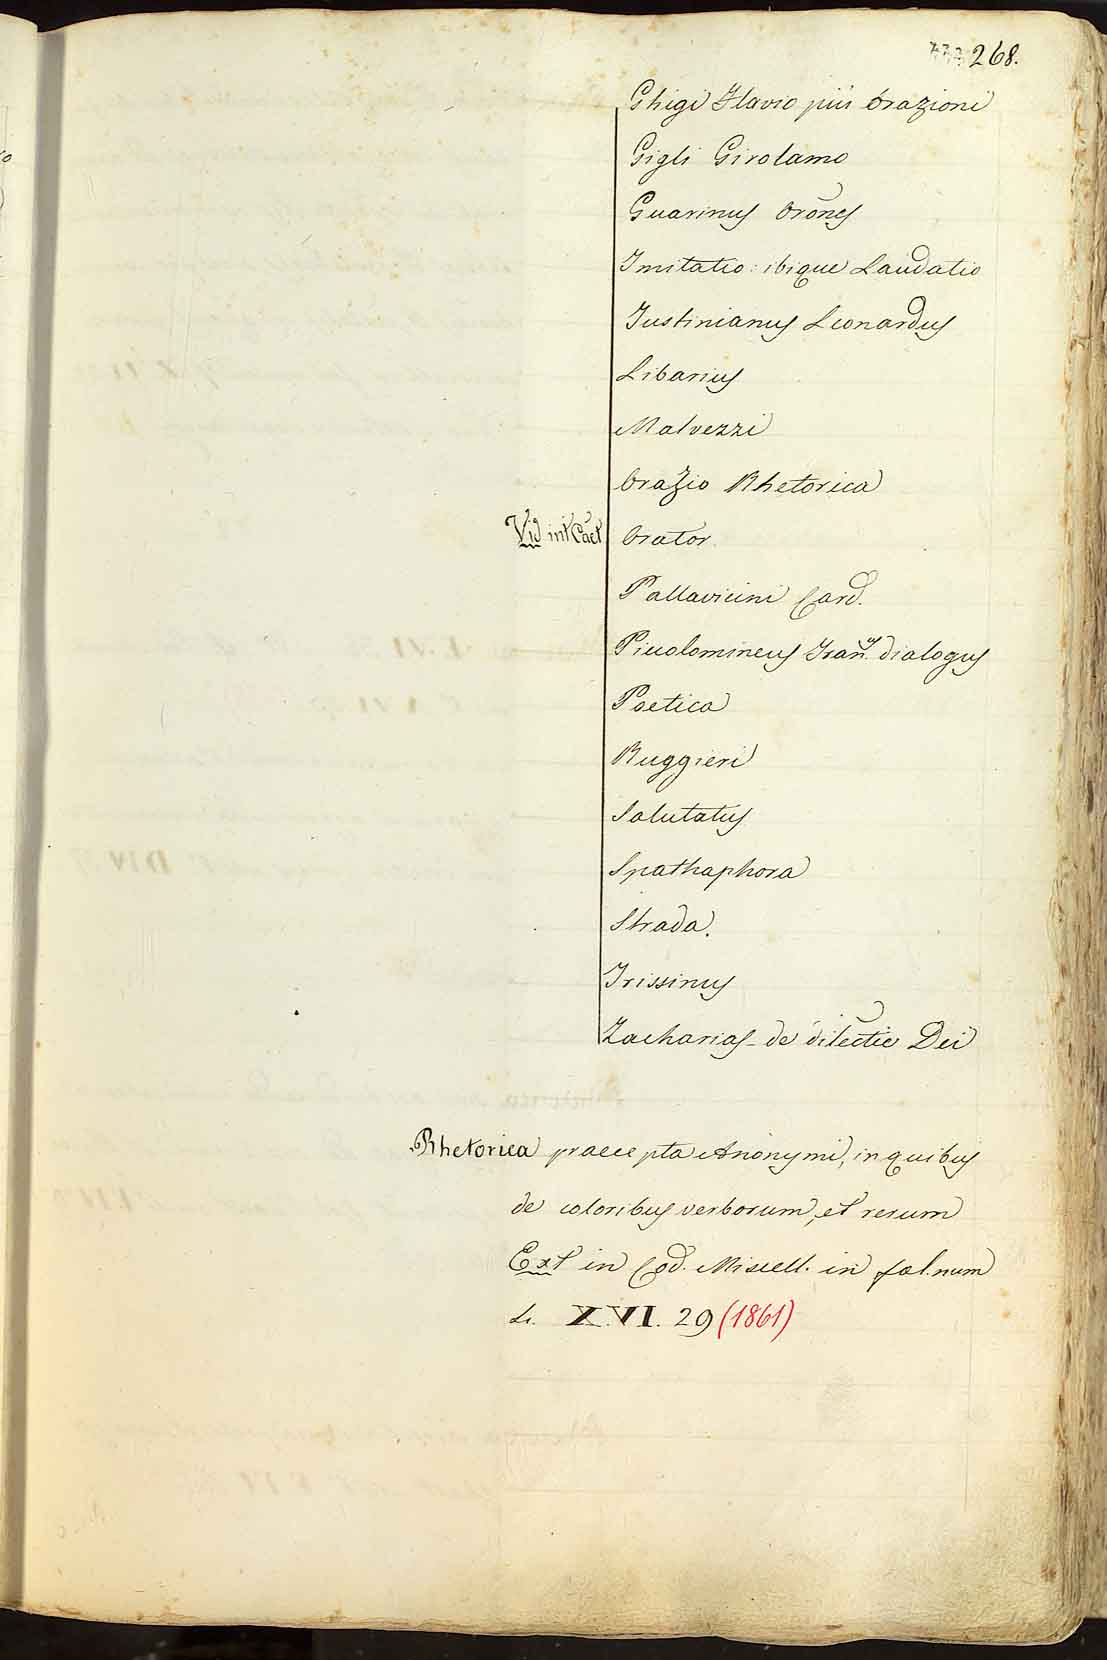 268.
Ghigi Flavio più Orazioni
Gigli Girolamo
Guarinus Orões
Imitatio: ibique Laudatio
Justinianus Leonardus
Libanius
Malvezzi
Orazio Rhetorica
Vid int Caet Orator
Pallavicini Card.
Piccolomineus Fran.us dialogus
Poetica
Ruggieri
Salutatus
Spathaphora
Strada.
Trissinus
Zacharias - de dilectie Dei
Rhetorica praecepta Anonymi, in quibus
de coloribus verborum, et rerum
Ext in Cod. Miscell. in fol. num
L. XVI. 29 (1861)